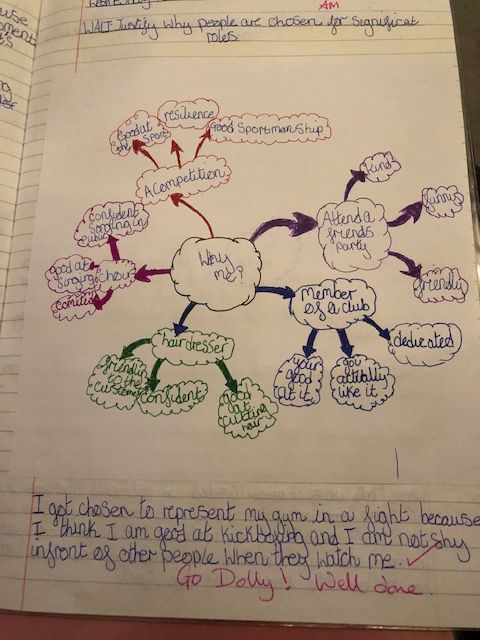 AM
WALT Justify why people are chosen for significat
roles
resilience
Good at
the sport
good Sportsmanship
A Competition
Kind
funny
Attend a
friends
party
friendly
confident
singing in
public
good at
singing
choir
Why
me?
Member
of a club
dedicated
your
good
at it
you
actually
like it
hairdresser
friendly
to the
customers
confident
good
at
cutting
hair
I got chosen to represent my gym in a fight because
I think I am good at kickboxing and I am not shy
infront of other people when they watch me.
Go Dolly! Well done.